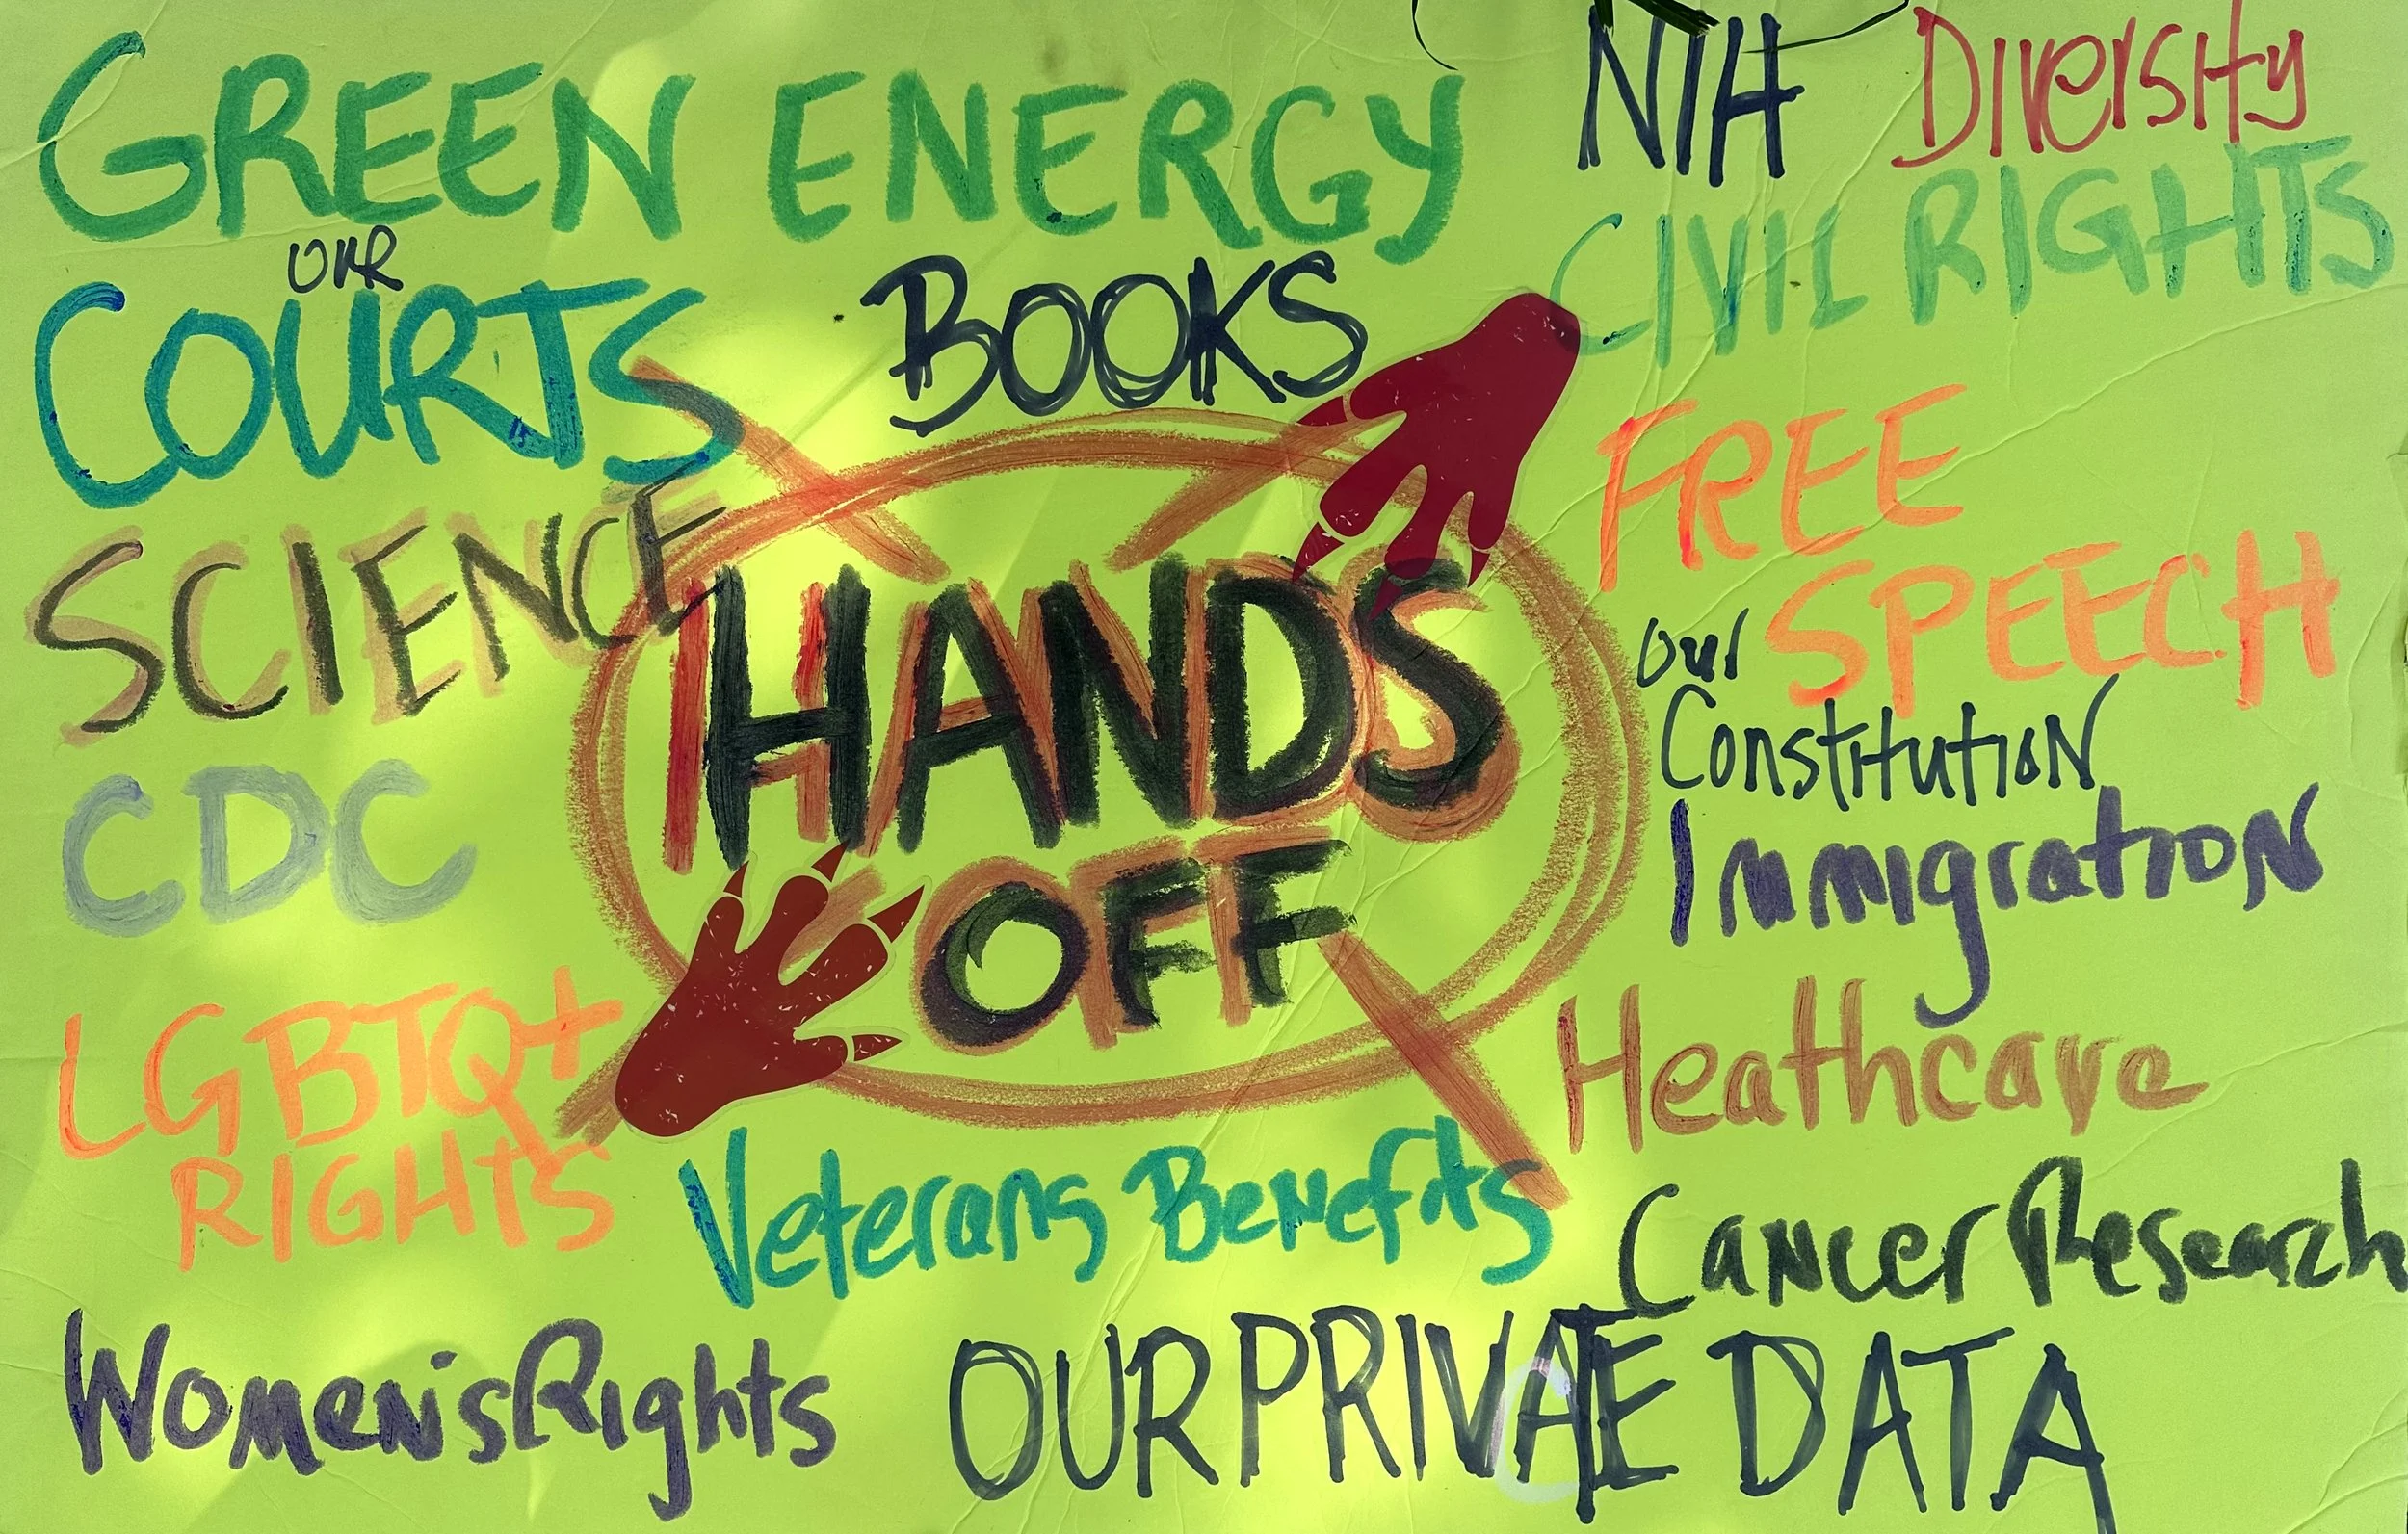 GREEN ENERGY
NIH
Diversity
CIVIL RIGHTS
OUR
COURTS
BOOKS
FREE
SPEECH
SCIENCE
HANDS
OFF
our
Constitution
CDC
Immigration
LGBTQ+
RIGHTS
Heathcare
Veterans Benefits
Cancer Research
Women's Rights
OUR PRIVATE DATA